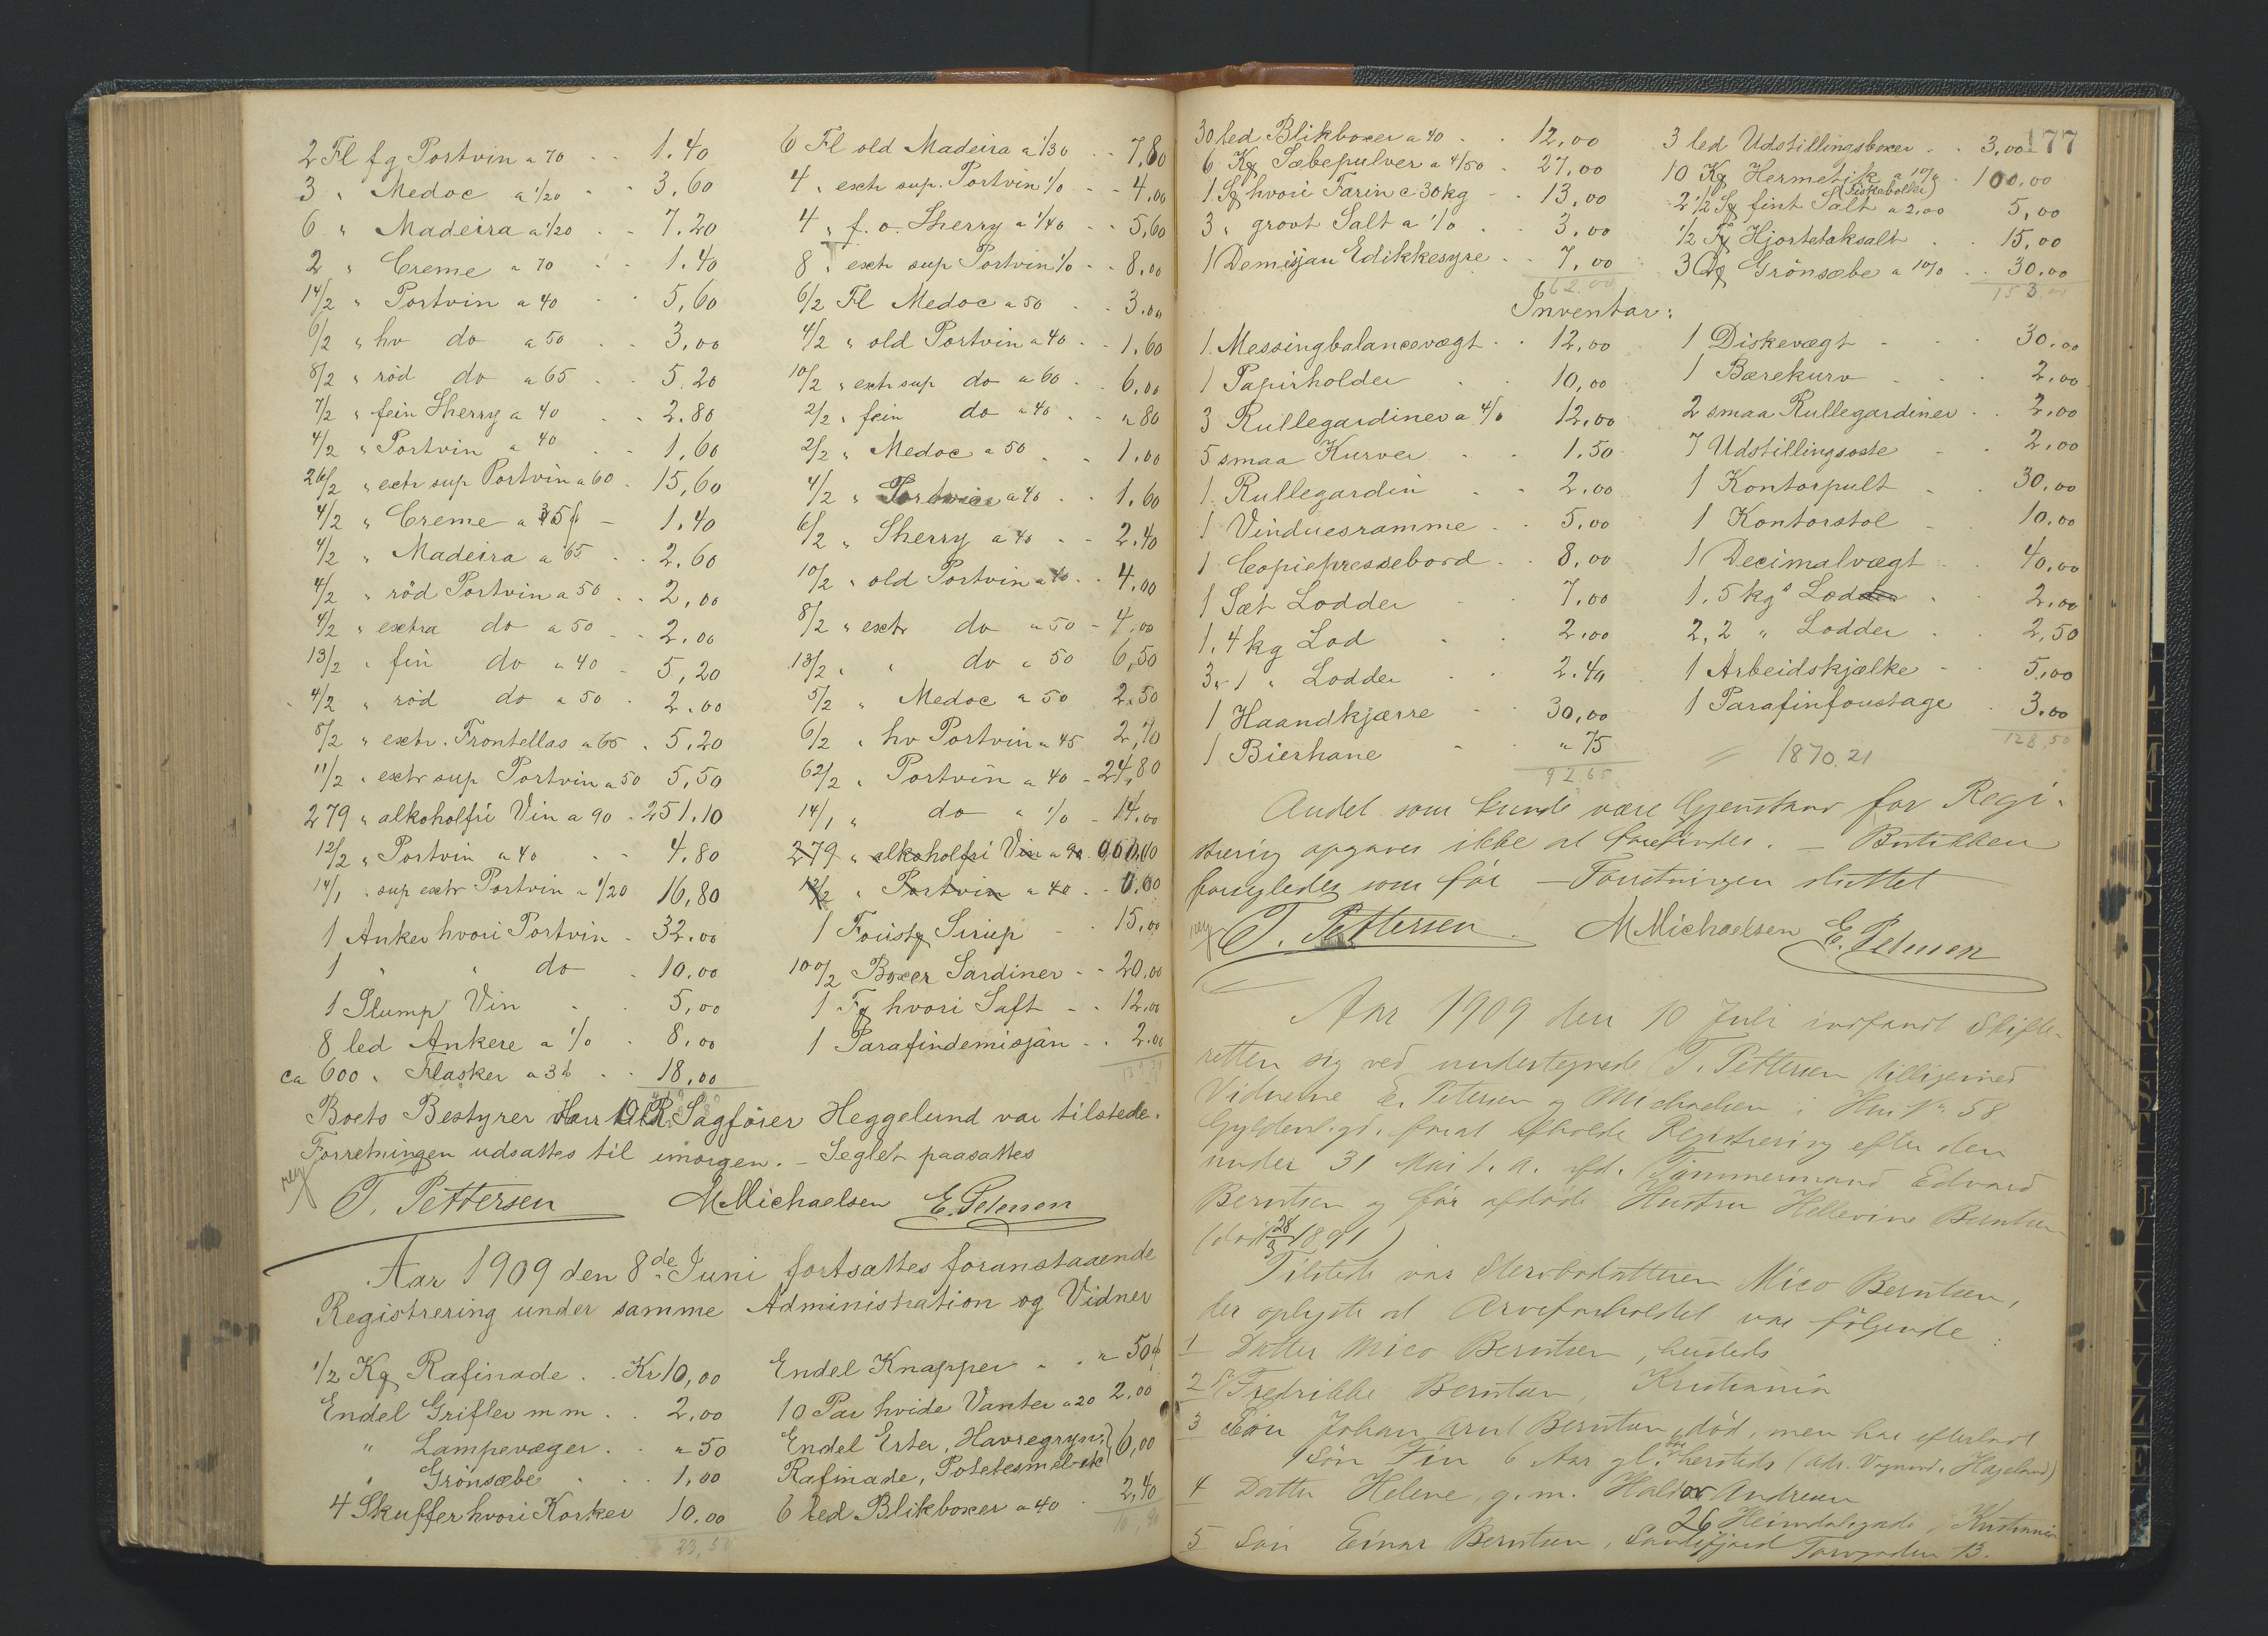 2 Fl fg Portvin a 70 . . 1.40
3 " Medoc a 1/20 - - 3,60
6 " Madeira a 1/20 . - 7.20
2 " Creme a 70 - - 1.40
14/2 " Portvin a 40 - - 5,60
6/2 " hv do a 50 . . 3,00
8/2 " röd do a 65 . . 5.20
7/2 " fein Sherry a 40 . . 2.80
4/2 " Portvin a 40 . . 1,60
26/2 " extr sup Portvin a 60 . 15,60
4/2 " Creme a 35 - 1.40
4/2 " Madeira a 65 . . 2.60
4/2 " röd Portvin a 50 . . 2,00
4/2 " extra do a 50 - - 2.00
13/2 " fin do a 40 - 5,20
4/2 " röd do a 50 . 2.00
8/2 " extr. Frontellas a 65 . 5.20
11/2 " extr sup Portvin a 50 5,50
279 " alkoholfri Vin a 90 . 251.10
12/2 " Portvin a 40 - - 4.80
14/1 " sup extr Portvin a 1/20 16,80
1 Anker hvori Portvin - 32.00
1 " " do . 10.00
1 Slump Vin - . 5,00
8 led Ankere a 1/0 . 8.00
ca 600 " Flasker a 3 . . 18,00
6 Fl old Madeira a 1/30 . . 7,80
4 " extr sup. Portvin 1/0 - - 4.00
4 " f. o. Sherry a 1/40 . . 5,60
8 " extr sup Portvin 1/0 . . 8.00
6/2 Fl Medoc a 50 . . 3.00
4/2 " old Portvin a 40 . . 1.60
10/2 " extr sup do a 60 . . 6.00
2/2 " fein do a 40 . . " 80
2/2 " Medoc a 50 . . 1.00
4/2 " Portvin a 40 . . 1.60
6/2 " Sherry a 40 . - 2.40
10/2 " old Portvin a 40 . . 4.00
8/2 " extr do a 50 - 4.00
13/2 " " do a 50 6,50
5/2 " Medoc a 50 2.50
6/2 " hv Portvin a 45 2,70
62/2 " Portvin a 40 - 24,80
14/1 " do a 1/0 - 14.00
279 " alkoholfri Vin a 90
12/2 " Portvin a 40 . .
1 Foustg Sirup - - 15.00
100/2 Boxer Sardiner - - 20.00
1 Fg hvori Saft - . 12.00
1 Parafindemisjan . . 2.00
Boets Bestyrer Herr O.R. Sagförer Heggelund var tilstede.
Forretningen udsattes til imorgen. - Seglet paasattes
reg T. Pettersen M Michaelsen E. Petersen
Aar 1909 den 8de Juni fortsattes foranstaaende
Registrering under samme Administration og Vidner
1/2 Kg Rafinade . . Kr 10,00
Endel Grifler m m . . 2,00
" Lampevæger . . " 50
" Grönsæbe . . . 1,00
4 Skuffer hvori Korker 10.00
23,50
Endel Knapper " . " 50
10 Par hvide Vanter a 20 2.00
Endel Erter, Havregryn, } 6,00
Rafinade, Potetesmel etc
6 led Blikboxer a 40 . 2,40
177
30 led Blikboxer a 40 . . 12,00
6 Kg Sæbepulver a 4/50 . 27,00
1 Sg hvori Farin c 30 kg . . 13,00
3 " grovt Salt a 1/0 . . 3,00
1 Demisjan Edikkesyre . . 7,00
62.00
3 led Udstillingsboxer . . 3,00
10 Kg Hermetik a 10/0 . 100.00
(Fiskeboller)
2 1/2 Sg fint Salt a 2,00 5,00
1/2 Fg Hjortetaksalt . . 15,00
3 Dg Grönsæbe a 10/0 . . 30,00
153.00
Inventar:
1. Messingbalancevægt . . 12,00
1 Papirholder . . 10,00
3 Rullegardiner a 4/0 12,00
5 smaa Kurver . . 1.50
1. Rullegardin . . 2,00
1 Vinduesramme . . 5,00
1 Copiepressebord . . 8,00
1 Sæt Lodder . . 7,00
1. 4 kg Lod . . 2,00
3. 1 " Lodder . . 2.40
1 Haandkjærre - - 30,00
1 Bierhane - - " 75
92.65
1 Diskevægt - - - 30.00
1 Bærekurv - - - 2,00
2 smaa Rullegardiner . . 2,00
7 Udstillingsoste - - 2,00
1 Kontorpult . . 30,00
1 Kontorstol - - 10,00
1 Decimalvægt - - 40,00
1. 5 kgs Lodder . . 2,00
2, 2 " Lodder . . 2,50
1 Arbeidskjælke . . 5,00
1 Parafinfoustage . 3.00
128,50
1870.21
Andet som kunde være Gjenstand for Regi-
strering opgaves ikke at forefindes. - Butikken
forseglede som för - Forretningen sluttet
reg T. Pettersen M Michaelsen E. Petersen
Aar 1909 den 10 Juli indfandt Skifte-
retten sig ved undertegnede T. Pettersen tilligemed
Vidnerne E. Petersen og Michaelsen i Hus No 58
Gyldenl.gd. forat afholde Registrering efter den
under 31 Mai d. a. afd. Tömmermand Edvard
Berntsen og för afdöde Hustru Hellevine Berntsen
(död 28/3 1891)
Tilstede var Stervbodatteren Mico Berntsen,
der oplyste at Arveforholdet var fölgende:
1 Datter Mico Berntsen, hersteds
2 " Fredrikke Berntsen, Kristiania
3 Sön Johan Arnt Berntsen, död, men har efterladt
1 Sön Fin 6 Aar gl. hersteds (adr. Hageland)
4 Datter Helene, g. m. Haldor Andresen
26 Heimdalsgade, Kristiania
5 Sön Einar Berntsen, Sandefjord Torvgaden 13.